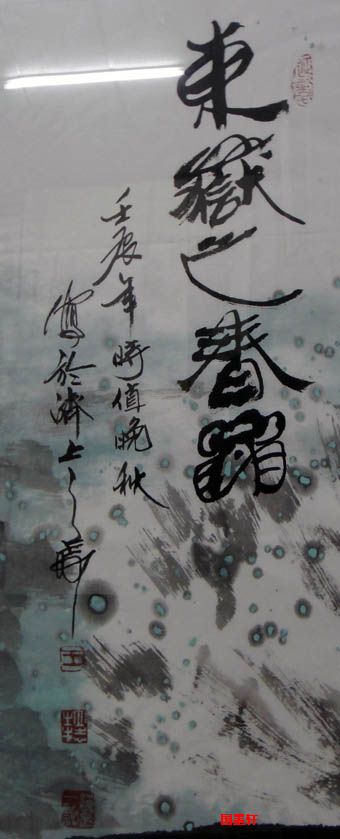 東嶽之春韻
壬辰年時值晚秋
寫於濟上之
国墨轩